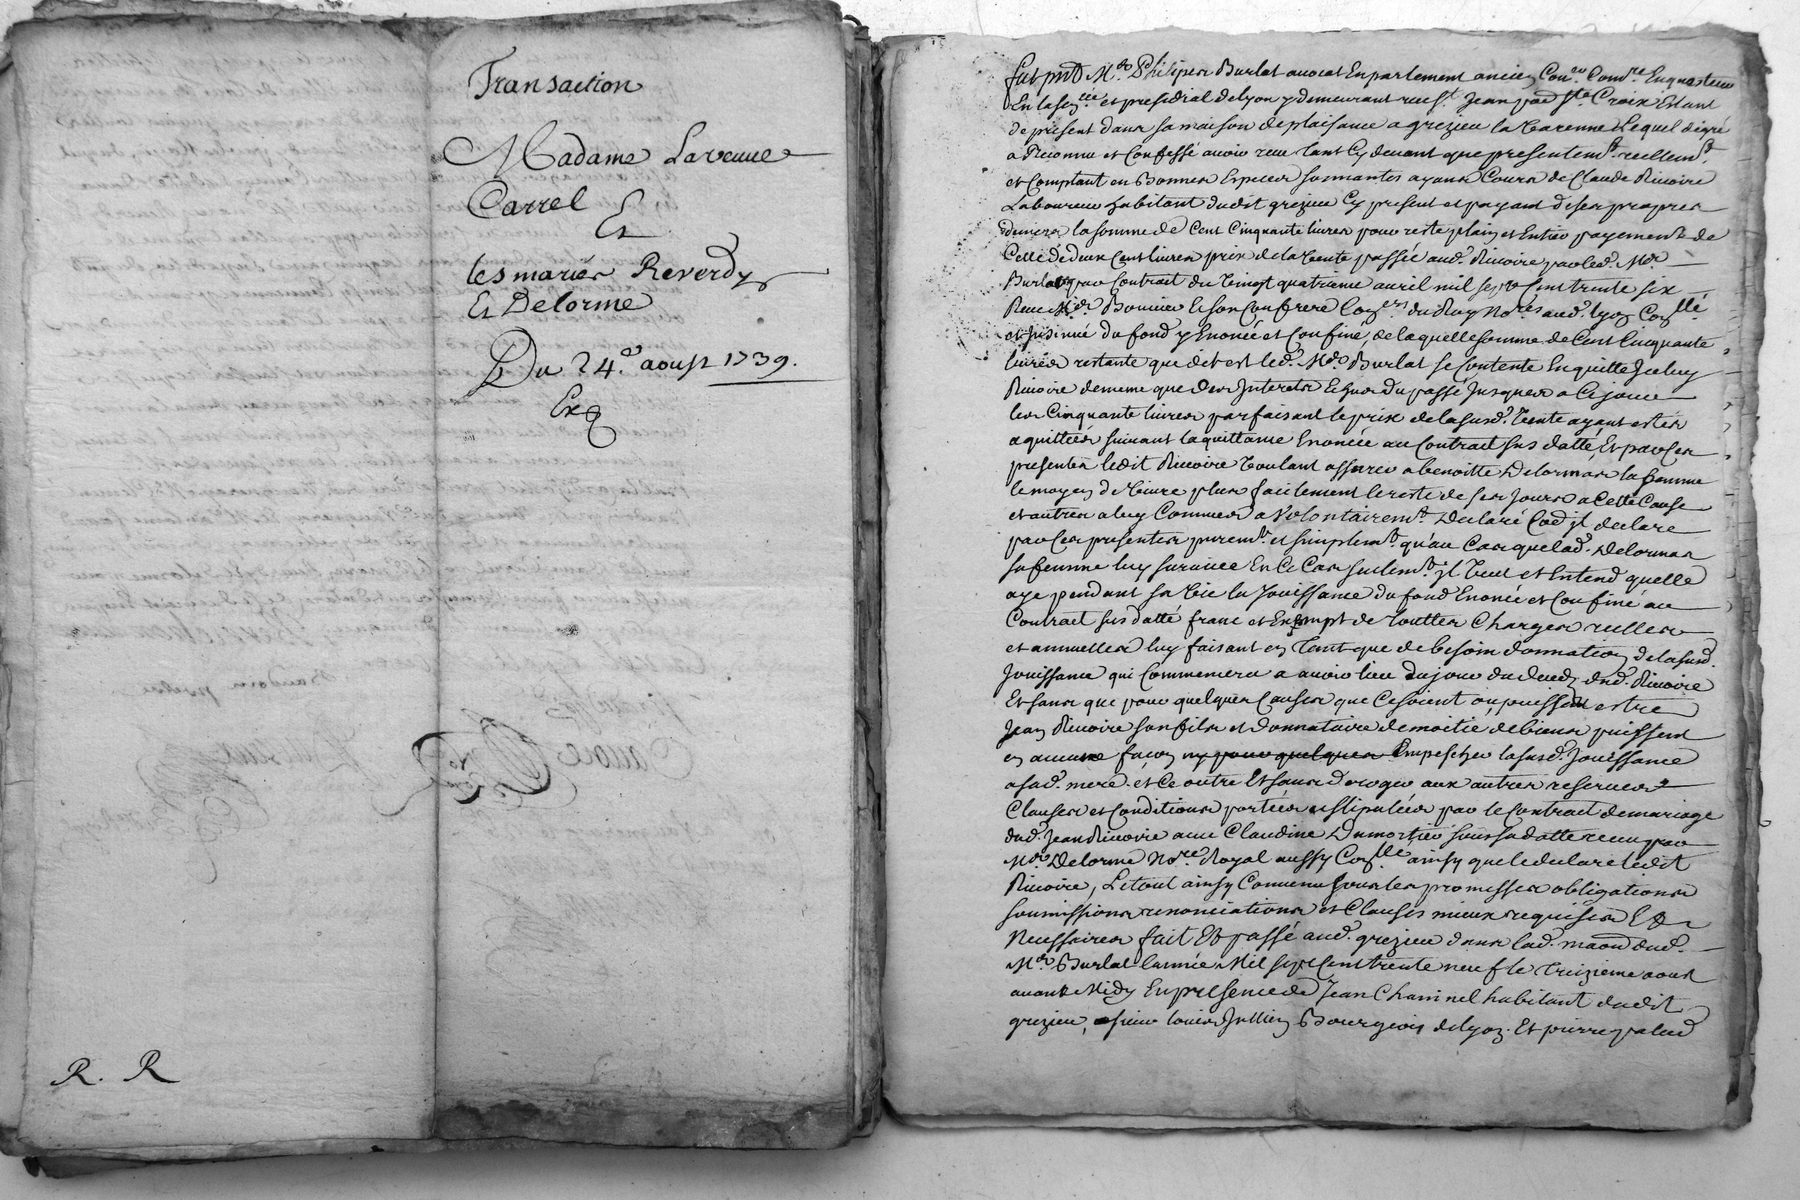 Transaction
Madame La veuve
Carrel
Et
les mariés Reverdy
Et Delorme
Du 24.e aoust 1739.
Exp
R. R
fut pnt Mre Philipes Burlat avocat En parlement ancien Coner Comre Enquesteur
En la senée et presidial de Lyon y demeurant rue St Jean psse Ste Croix Estant
de present dans sa maison de plaisance a grezieu la varenne Lequel de gré
a Reconnu et Confessé avoir receu tant Cy devant que presentemt reellemt
et Comptant en Bonnes Especes sonnantes ayans Cours de Claude Rivoire
Laboureur habitant dudit grezieu Cy present et payant de ses propres
deniers la somme de Cent Cinquante livres pour reste plain et Entier payement de
Celle de deux Cent livres prix de la vente passée aud. Rivoire par led. Mre
Burlat par Contrat du vingt quatrieme avril mil sept Cent trente six
Receu Mre Bonnier et son Confrere Coners du Roy Nores aud. Lyon Conllé
et insinué du fond y Enoncé et Confiné, de laquelle somme de Cent Cinquante
livres restante que dit est led. Mre Burlat se Contente En quitte Iceluy
Rivoire de meme que des Interets Echus du passé Jusques a Ce jour
les Cinquante livres parfaisant le prix de la susd. vente ayant estés
aquittées suivant la quittance Enoncée au Contrat sus datté, Et par Ces
presentes ledit Rivoire voulant assurer a benoitte Delormes sa femme
le moyen de vivre plus facilement le reste de ses jours a Cette Cause
et autres a luy Connues a volontairemt Declaré Coe il declare
par Ces presentes puremt et simplemt qu'au Cas que lad. Delormes
sa femme luy survive En Ce Cas seulemt il veut et Entend quelle
aye pendant sa vie la Jouissance du fond Enoncé et Confiné au
Contrat sus datté franc et Exempt de touttes Charges reelles
et annuelles luy faisant en tant que de besoin donnation de la susd.
Jouissance qui Commencera a avoir lieu du jour du deced dud. Rivoire
Et sans que pour quelques Causes que Ce soient ou puissent estre
Jean Rivoire son fils et donnataire de moitié de biens puissent
en aucune façon ny pour quelques Empescher la susd. Jouissance
a sad. mere, et Ce outre Et sans deroger aux autres reserves
Clauses et Conditions portées et stipulées par le Contract de mariage
dud. Jean Rivoire avec Claudine Dumortier sous sa datte receu par
Mre Delorme Nore Royal aussy Conllé ainsy que le declare ledit
Rivoire, Le tout ainsy Convenu sous les promesses obligations
soumissions renonciations et Clauses mieux requises Et
Necessaires fait Et passé aud. grezieu dans lad. maon dud.
Mre Burlat l'année Mil sept Cent trente neuf le treizieme aoust
avant Midy En presence de Jean Chaninel habitant dudit
grezieu, sieur Louis Jullien Bourgeois de Lyon Et pierre palud